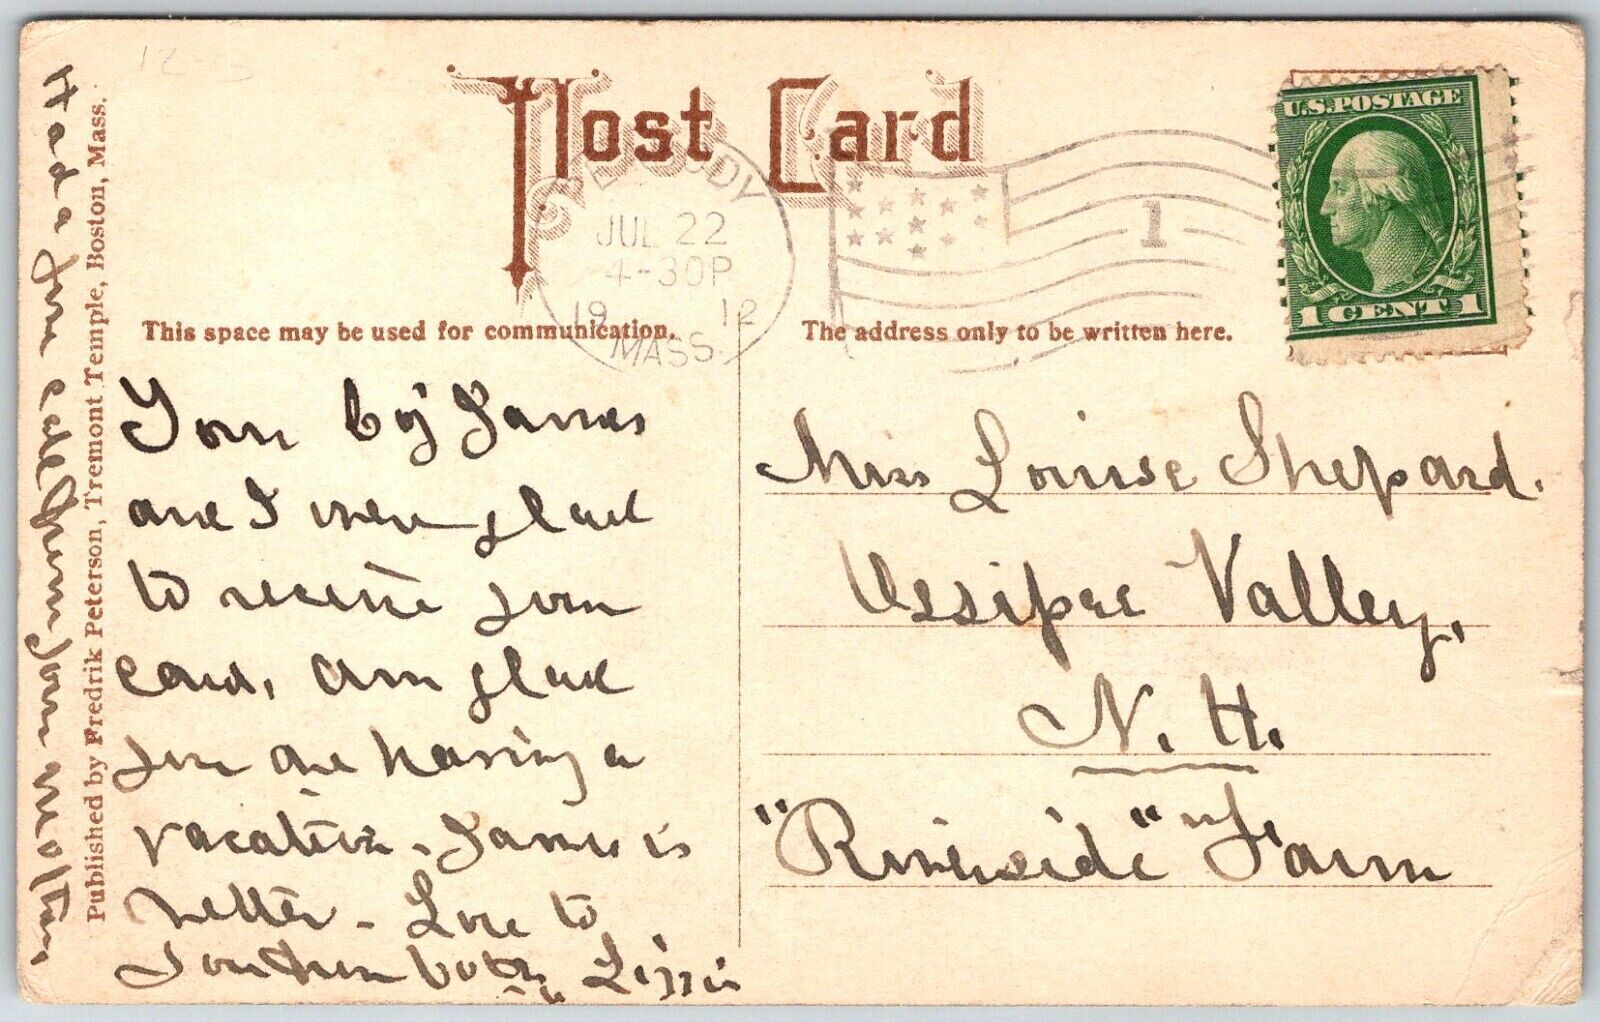 Post Card
PEABODY
JUL 22
4-30P
19 12
MASS.
1
U.S. POSTAGE
1 CENT 1
This space may be used for communication.
The address only to be written here.
by James
and I were glad
to receive your
card. Am glad
you are having a
vacation. James is
better. Love to
both Lizzie
Had a fine call from your mother
Miss Louise Shepard.
Ossipee Valley,
N. H.
"Riverside" Farm
Published by Fredrik Peterson, Tremont Temple, Boston, Mass.